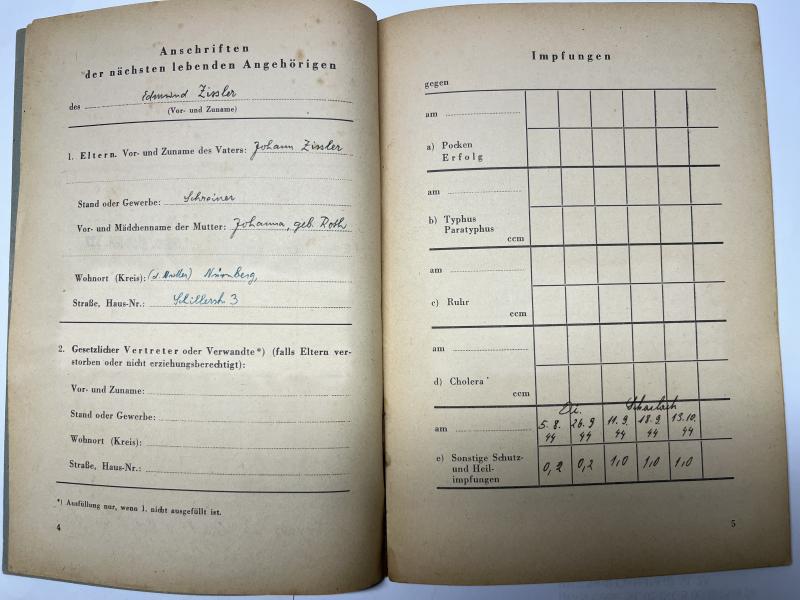 Anschriften
der nächsten lebenden Angehörigen
des Edmund Zissler
(Vor- und Zuname)
1. Eltern. Vor- und Zuname des Vaters: Johann Zissler
Stand oder Gewerbe: Schreiner
Vor- und Mädchenname der Mutter: Johanna, geb. Roth
Wohnort (Kreis): (d. Mutter) Nürnberg,
Straße, Haus-Nr.: Schillerstr. 3
2. Gesetzlicher Vertreter oder Verwandte*) (falls Eltern ver-
storben oder nicht erziehungsberechtigt):
Vor- und Zuname:
Stand oder Gewerbe:
Wohnort (Kreis):
Straße, Haus-Nr.:
*) Ausfüllung nur, wenn 1. nicht ausgefüllt ist.
4
Impfungen
gegen
am
a) Pocken
Erfolg
am
b) Typhus
Paratyphus
ccm
am
c) Ruhr
ccm
am
d) Cholera
ccm
Di. Scharlach
am 5.8. 26.9 11.9. 18.9. 13.10.
44 44 44 44 44
e) Sonstige Schutz-
und Heil-
impfungen
0,2 0,2 1,0 1,0 1,0
5